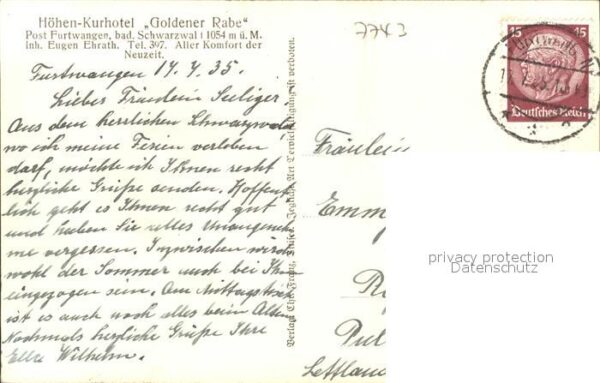 Höhen-Kurhotel „Goldener Rabe"
Post Furtwangen, bad. Schwarzwal 1 1054 m ü. M.
Inh. Eugen Ehrath. Tel. 397. Aller Komfort der
Neuzeit.
7743
Furtwangen 17.7.35.
Liebes Fräulein Seeliger
Aus dem herrlichen Schwarzwald,
wo ich meine Ferien verleben
darf, möchte ich Ihnen recht
herzliche Grüße senden. Hoffent
lich geht es Ihnen recht gut
und haben Sie alles Unangeneh
me vergessen. Inzwischen wird
wohl der Sommer auch bei Ihnen
eingezogen sein. Am Mittagstisch
ist es auch noch alles beim Alten
Nochmals herzliche Grüße Ihre
Ella Wilhelm.
Verlag Chr. Franz,
verboten.
15 15
Deutsches Reich
Fräulein
Emm
Lettland
privacy protection
Datenschutz